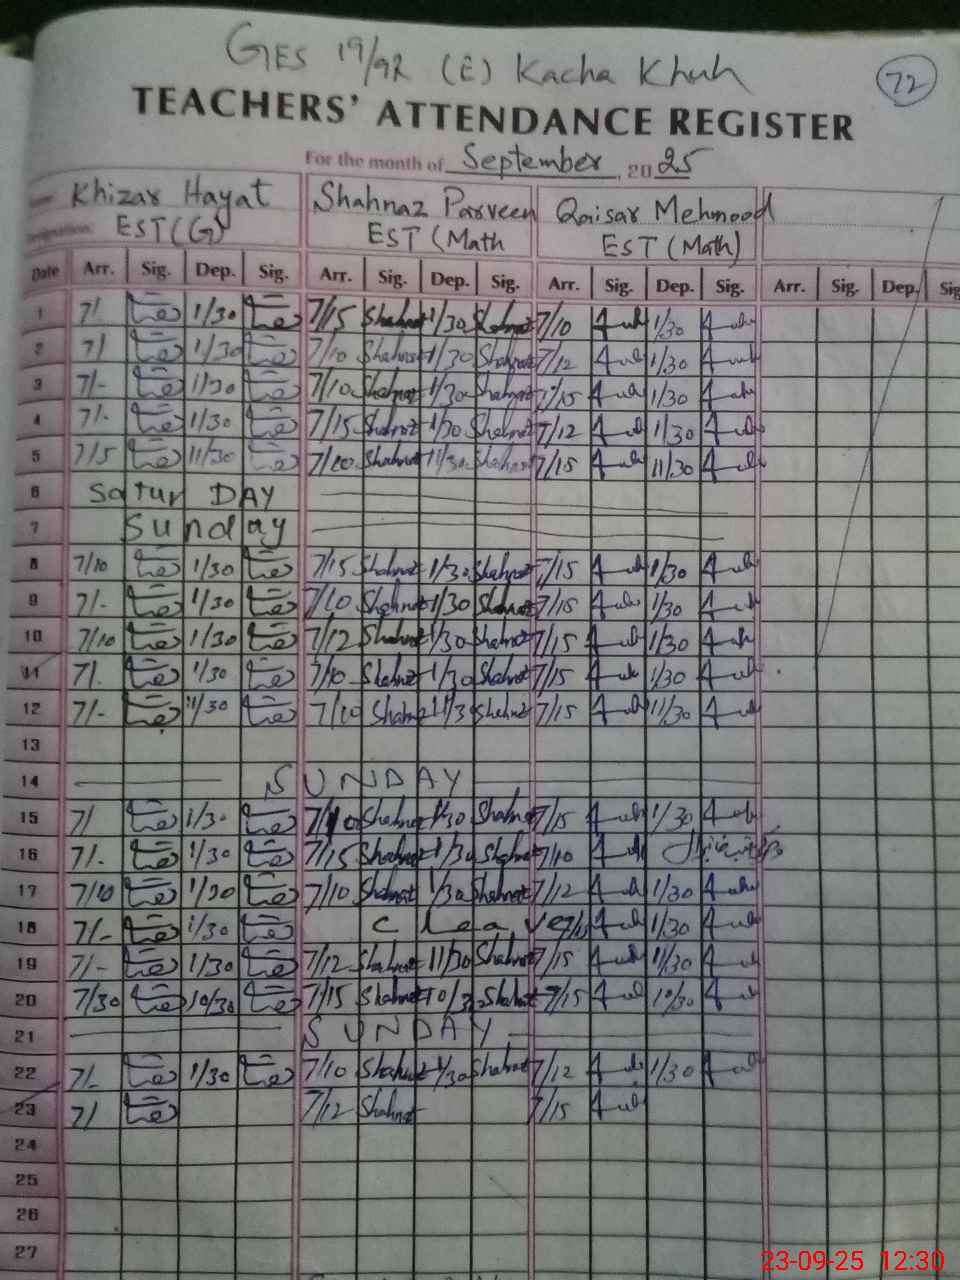 GES 19/9R (E) Kacha Khuh
72
TEACHERS' ATTENDANCE REGISTER
For the month of September, 2025
Khizar Hayat Shahnaz Parveen Qaisar Mehmood
Designation: EST(G) EST (Math EST (Math)
Date Arr. Sig. Dep. Sig. Arr. Sig. Dep. Sig. Arr. Sig. Dep. Sig. Arr. Sig. Dep. Sig
1 7/- 1/30 7/15 Shahnaz 1/30 Shahnaz 7/10 1/30
2 7/ 1/30 7/10 Shahnaz 1/30 Shahnaz 7/12 1/30
3 7/- 1/30 7/10 Shahnaz 1/30 Shahnaz 7/15 1/30
4 7/- 1/30 7/15 Shahnaz 1/30 Shahnaz 7/12 1/30
5 7/5 11/30 7/10 Shahnaz 11/30 Shahnaz 7/15 11/30
6 Satur DAY
7 Sunday
8 7/10 1/30 7/15 Shahnaz 1/30 Shahnaz 7/15 1/30
9 7/- 1/30 7/10 Shahnaz 1/30 Shahnaz 7/15 1/30
10 7/10 1/30 7/12 Shahnaz 1/30 Shahnaz 7/15 1/30
11 7/. 1/30 7/10 Shahnaz 1/30 Shahnaz 7/15 1/30
12 7/- 11/30 7/10 Shahnaz 11/30 Shahnaz 7/15 11/30
13
14 SUNDAY
15 7/ 1/30 7/10 Shahnaz 1/30 Shahnaz 7/15 1/30
16 7/- 1/30 7/15 Shahnaz 1/30 Shahnaz 7/10
17 7/10 1/30 7/10 Shahnaz 1/30 Shahnaz 7/12 1/30
18 7/- 1/30 c Leave 7/15 1/30
19 7/- 11/30 7/12 Shahnaz 11/30 Shahnaz 7/15 11/30
20 7/30 10/30 7/15 Shahnaz 10/30 Shahnaz 7/15 10/30
21 SUNDAY
22 7/- 1/30 7/10 Shahnaz 1/30 Shahnaz 7/12 1/30
23 7/ 7/12 Shahnaz 7/15
24
25
26
27
23-09-25 12:30